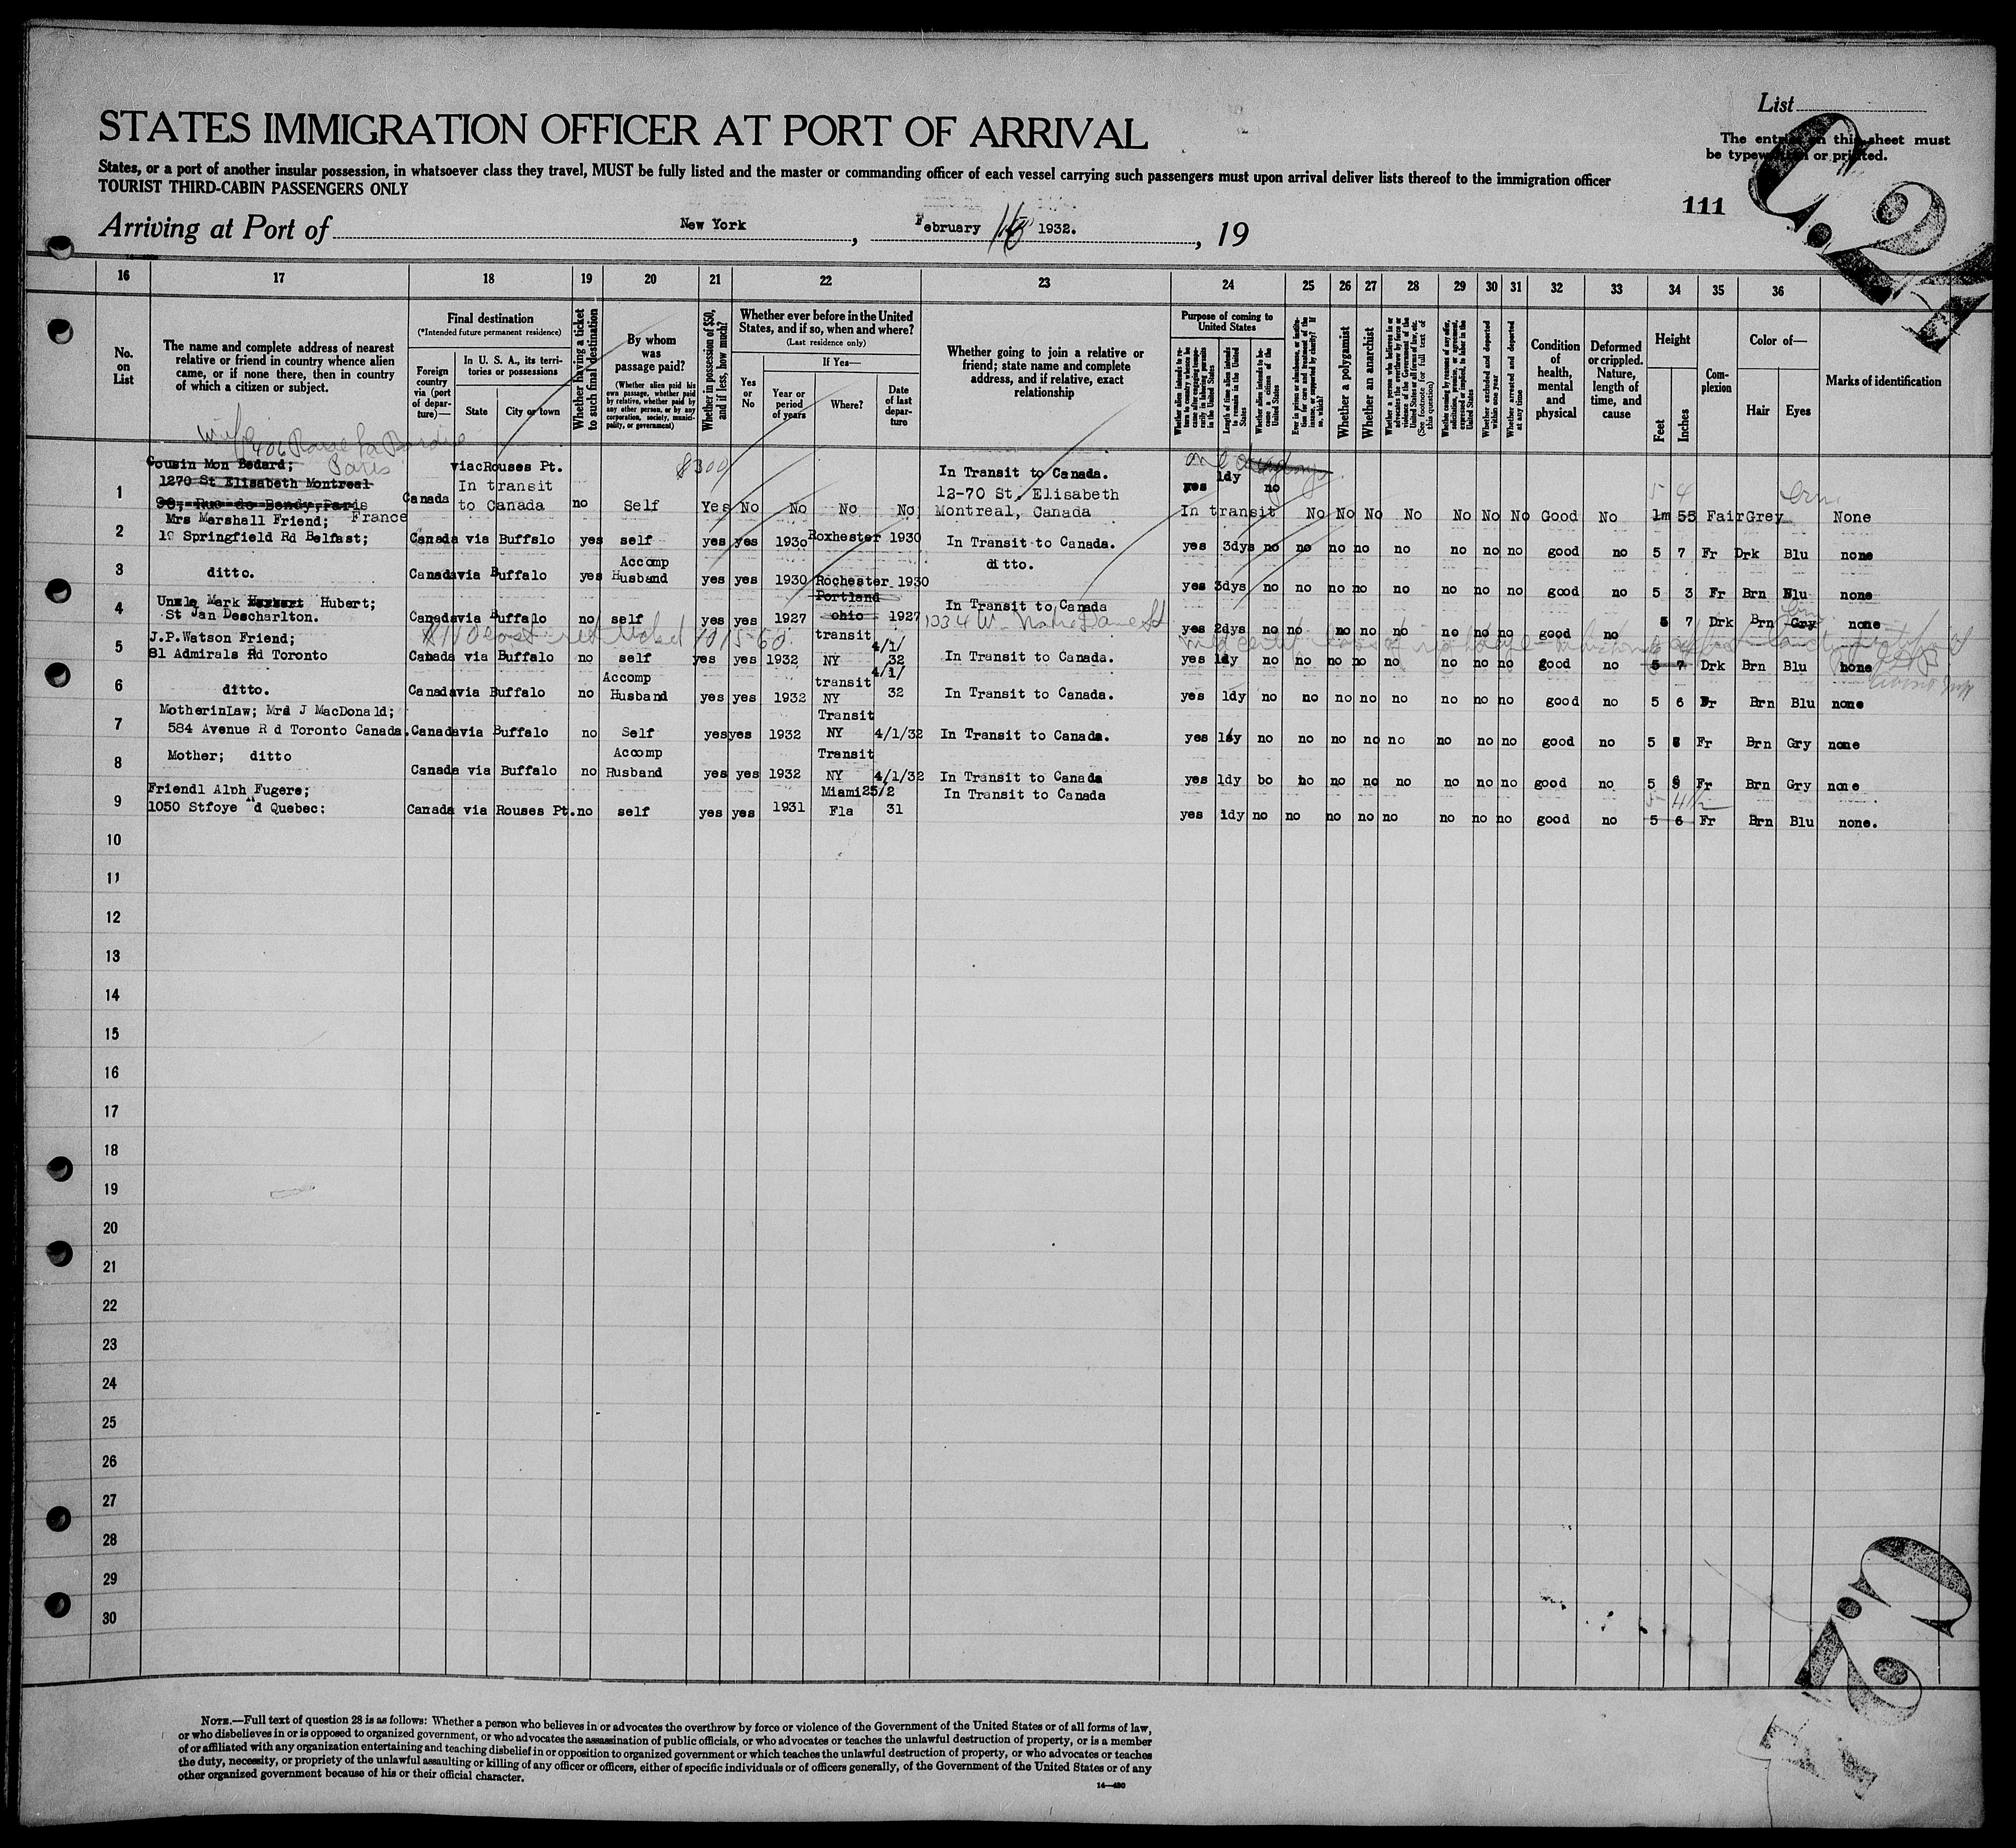 List
STATES IMMIGRATION OFFICER AT PORT OF ARRIVAL
The entries on this sheet must
be typewritten or printed.
States, or a port of another insular possession, in whatsoever class they travel, MUST be fully listed and the master or commanding officer of each vessel carrying such passengers must upon arrival deliver lists thereof to the immigration officer
TOURIST THIRD-CABIN PASSENGERS ONLY
111
C.24
Arriving at Port of New York, February 1932. , 19
16 17 18 19 20 21 22 23 24 25 26 27 28 29 30 31 32 33 34 35 36
No. on List
The name and complete address of nearest
relative or friend in country whence alien
came, or if none there, then in country
of which a citizen or subject.
Final destination
(*Intended future permanent residence)
Foreign country via (port of departure)—
In U. S. A., its territories or possessions
State
City or town
Whether having a ticket to such final destination
By whom was passage paid?
(Whether alien paid his own passage, whether paid by relative, whether paid by any other person, or by any corporation, society, municipality, or government)
Whether in possession of $50, and if less, how much?
Whether ever before in the United
States, and if so, when and where?
(Last residence only)
Yes or No
If Yes—
Year or period of years
Where?
Date of last departure
Whether going to join a relative or
friend; state name and complete
address, and if relative, exact
relationship
Purpose of coming to United States
Whether alien intends to return to country whence he came after engaging temporarily in laboring pursuits in the United States
Length of time alien intends to remain in the United States
Whether alien intends to become a citizen of the United States
Ever in prison or almshouse, or institution for care and treatment of the insane, or supported by charity? If so, which?
Whether a polygamist
Whether an anarchist
Whether a person who believes in or advocates the overthrow by force or violence of the Government of the United States or all forms of law, etc. (See footnote for full text of this question)
Whether coming by reason of any offer, solicitation, promise, or agreement, expressed or implied, to labor in the United States
Whether excluded and deported within one year
Whether arrested and deported at any time
Condition of health, mental and physical
Deformed or crippled. Nature, length of time, and cause
Height
Feet
Inches
Complexion
Color of—
Hair
Eyes
Marks of identification
wife
Paris
Cousin Mon Bedard;
1270 St Elisabeth Montreal
Rue de Bondy, Paris
France
1 Canada viacRouses Pt. In transit to Canada no Self $300 Yes No No No No In Transit to Canada. 12-70 St. Elisabeth Montreal, Canada yes 1dy no In transit No No No No No No No Good No 1m 55 5 4 Fair Grey None
Mrs Marshall Friend;
2 Springfield Rd Belfast; Canada via Buffalo yes self yes yes 1930 Roxhester 1930 In Transit to Canada. yes 3dys no no no no no no no no good no 5 7 Fr Drk Blu none
3 ditto. Canadavia Buffalo yes Accomp Husband yes yes 1930 Rochester 1930 ditto. yes 3dys no no no no no no no no good no 5 3 Fr Brn Blu none
4 Unxle Mark Hubert; St Jan Descharlton. Canadavia Buffalo no self yes yes 1927 Portland ohio 1927 In Transit to Canada 1034 W. Notre Dame St yes 2dys no no no no no no no no good no 5 7 Drk Brn Gry none
5 J.P.Watson Friend; 81 Admirals Rd Toronto Canada via Buffalo no self yes yes 1932 transit NY 4/1/32 In Transit to Canada. yes 1dy no no no no no no no no good no 5 7 Drk Brn Blu none
6 ditto. Canadavia Buffalo no Accomp Husband yes yes 1932 transit NY 4/1/32 In Transit to Canada. yes 1dy no no no no no no no no good no 5 6 Fr Brn Blu none
7 MotherinLaw; Mrs J MacDonald; 584 Avenue R d Toronto Canada. Canadavia Buffalo no Self yes yes 1932 Transit NY 4/1/32 In Transit to Canada. yes 1dy no no no no no no no no good no 5 8 Fr Brn Gry none
8 Mother; ditto Canada via Buffalo no Accomp Husband yes yes 1932 Transit NY 4/1/32 In Transit to Canada yes 1dy bo no no no no no no no good no 5 6 Fr Brn Gry none
9 Friendl Alph Fugere; 1050 Stfoye d Quebec: Canada via Rouses Pt. no self yes yes 1931 Miami Fla 25/2 31 In Transit to Canada yes 1dy no no no no no no no no good no 5 6 5 4½ Fr Brn Blu none.
10
11
12
13
14
15
16
17
18
19
20
21
22
23
24
25
26
27
28
29
30
NOTE.—Full text of question 28 is as follows: Whether a person who believes in or advocates the overthrow by force or violence of the Government of the United States or of all forms of law,
or who disbelieves in or is opposed to organized government, or who advocates the assassination of public officials, or who advocates or teaches the unlawful destruction of property, or is a member
of or affiliated with any organization entertaining and teaching disbelief in or opposition to organized government or which teaches the unlawful destruction of property, or who advocates or teaches
the duty, necessity, or propriety of the unlawful assaulting or killing of any officer or officers, either of specific individuals or of officers generally, of the Government of the United States or of any
other organized government because of his or their official character.
14—430